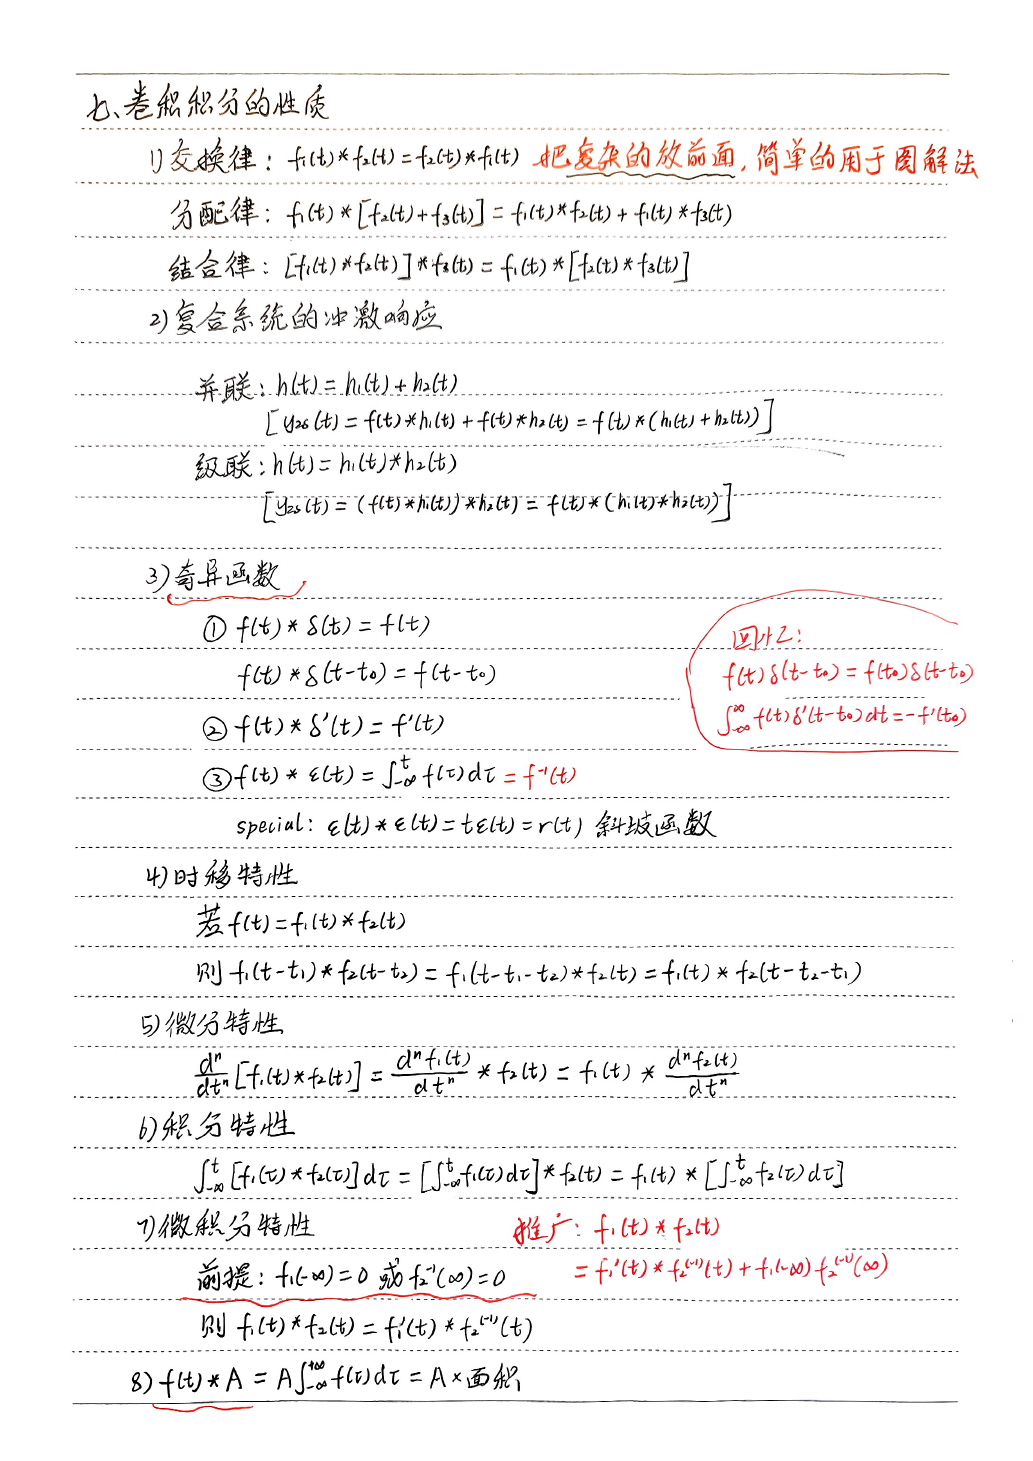 七、卷积积分的性质
1) 交换律: f₁(t)*f₂(t)=f₂(t)*f₁(t) 把复杂的放前面,简单的用于图解法
分配律: f₁(t)*[f₂(t)+f₃(t)]=f₁(t)*f₂(t)+f₁(t)*f₃(t)
结合律: [f₁(t)*f₂(t)]*f₃(t)=f₁(t)*[f₂(t)*f₃(t)]
2) 复合系统的冲激响应
并联: h(t)=h₁(t)+h₂(t)
[yzs(t)=f(t)*h₁(t)+f(t)*h₂(t)=f(t)*(h₁(t)+h₂(t))]
级联: h(t)=h₁(t)*h₂(t)
[yzs(t)=(f(t)*h₁(t))*h₂(t)=f(t)*(h₁(t)*h₂(t))]
3) 奇异函数
① f(t)*δ(t)=f(t)
f(t)*δ(t-t₀)=f(t-t₀)
② f(t)*δ'(t)=f'(t)
③ f(t)*ε(t)=∫_{-∞}^{t} f(τ)dτ=f⁻¹(t)
special: ε(t)*ε(t)=tε(t)=r(t) 斜坡函数
回忆:
f(t)δ(t-t₀)=f(t₀)δ(t-t₀)
∫_{-∞}^{∞} f(t)δ'(t-t₀)dt=-f'(t₀)
4) 时移特性
若 f(t)=f₁(t)*f₂(t)
则 f₁(t-t₁)*f₂(t-t₂)=f₁(t-t₁-t₂)*f₂(t)=f₁(t)*f₂(t-t₂-t₁)
5) 微分特性
dⁿ/dtⁿ[f₁(t)*f₂(t)]=dⁿf₁(t)/dtⁿ*f₂(t)=f₁(t)*dⁿf₂(t)/dtⁿ
6) 积分特性
∫_{-∞}^{t}[f₁(τ)*f₂(τ)]dτ=[∫_{-∞}^{t}f₁(τ)dτ]*f₂(t)=f₁(t)*[∫_{-∞}^{t}f₂(τ)dτ]
7) 微积分特性 推广: f₁(t)*f₂(t)
=f₁'(t)*f₂⁽⁻¹⁾(t)+f₁(-∞)f₂⁽⁻¹⁾(∞)
前提: f₁(-∞)=0 或 f₂⁻¹(∞)=0
则 f₁(t)*f₂(t)=f₁'(t)*f₂⁽⁻¹⁾(t)
8) f(t)*A=A∫_{-∞}^{+∞}f(τ)dτ=A×面积